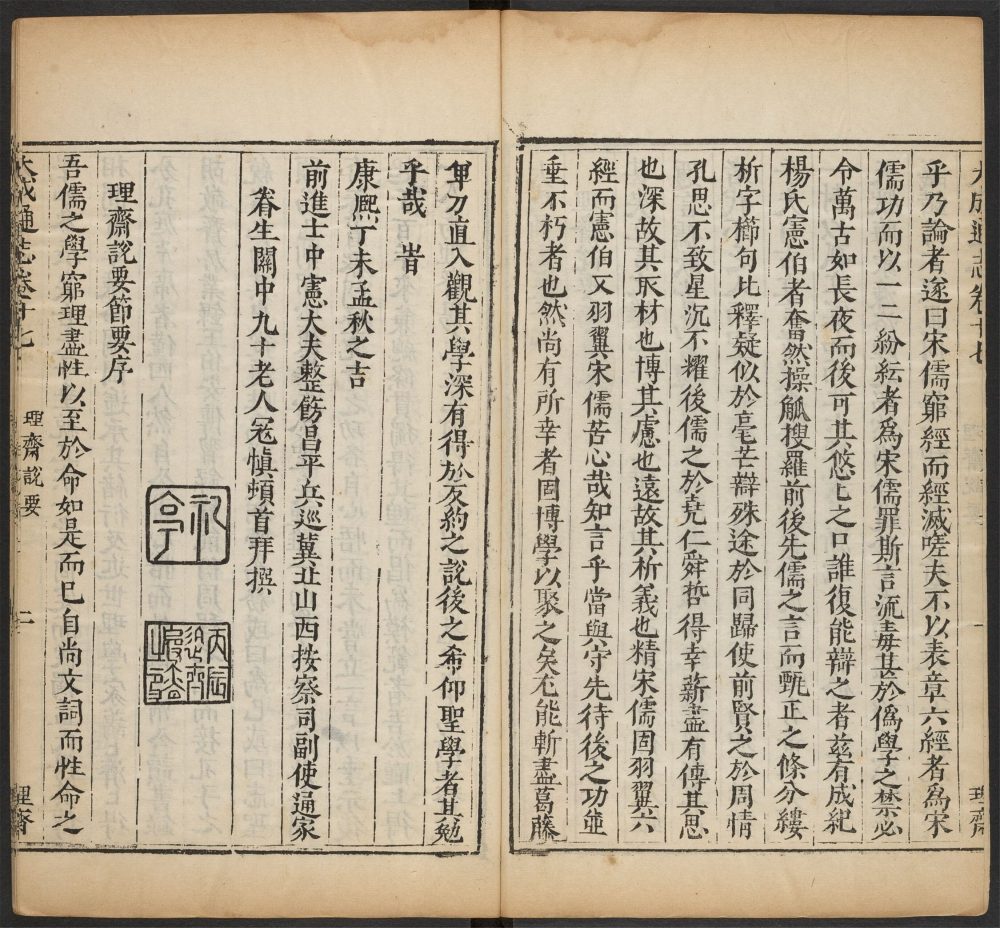 大成通志卷十七
理齋
乎乃論者遂曰宋儒窮經而經滅嗟夫不以表章六經者爲宋
儒功而以一二紛紜者爲宋儒罪斯言流毒甚於僞學之禁必
令萬古如長夜而後可其悠匕之口誰復能辯之者茲有成紀
楊氏憲伯者奮然操觚搜羅前後先儒之言而甄正之條分縷
析字櫛句比釋疑似於毫芒辯殊途於同歸使前賢之於周情
孔思不致星沉不耀後儒之於堯仁舜哲得幸薪盡有傳其思
也深故其取材也博其慮也遠故其析義也精宋儒固羽翼六
經而憲伯又羽翼宋儒苦心哉知言乎當與守先待後之功並
垂不朽者也然尚有所幸者固博學以聚之矣尤能斬盡葛藤
單刀直入觀其學深有得於反約之說後之希仰聖學者其勉
乎哉 旹
康熙丁未孟秋之吉
前進士中憲大夫整飭昌平兵巡冀北山西按察司副使通家
眷生關中九十老人冦愼頓首拜撰
理齋說要節要序
吾儒之學窮理盡性以至於命如是而已自尚文詞而性命之
大成通志卷十七
理齋說要
二
理齋